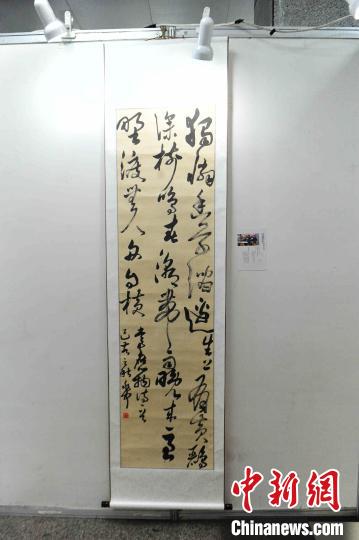 獨憐幽草澗邊生上有黃鸝
深樹鳴春潮帶雨晚來急
野渡無人舟自橫
韋應物詩
己亥
中新网
Chinanews.com